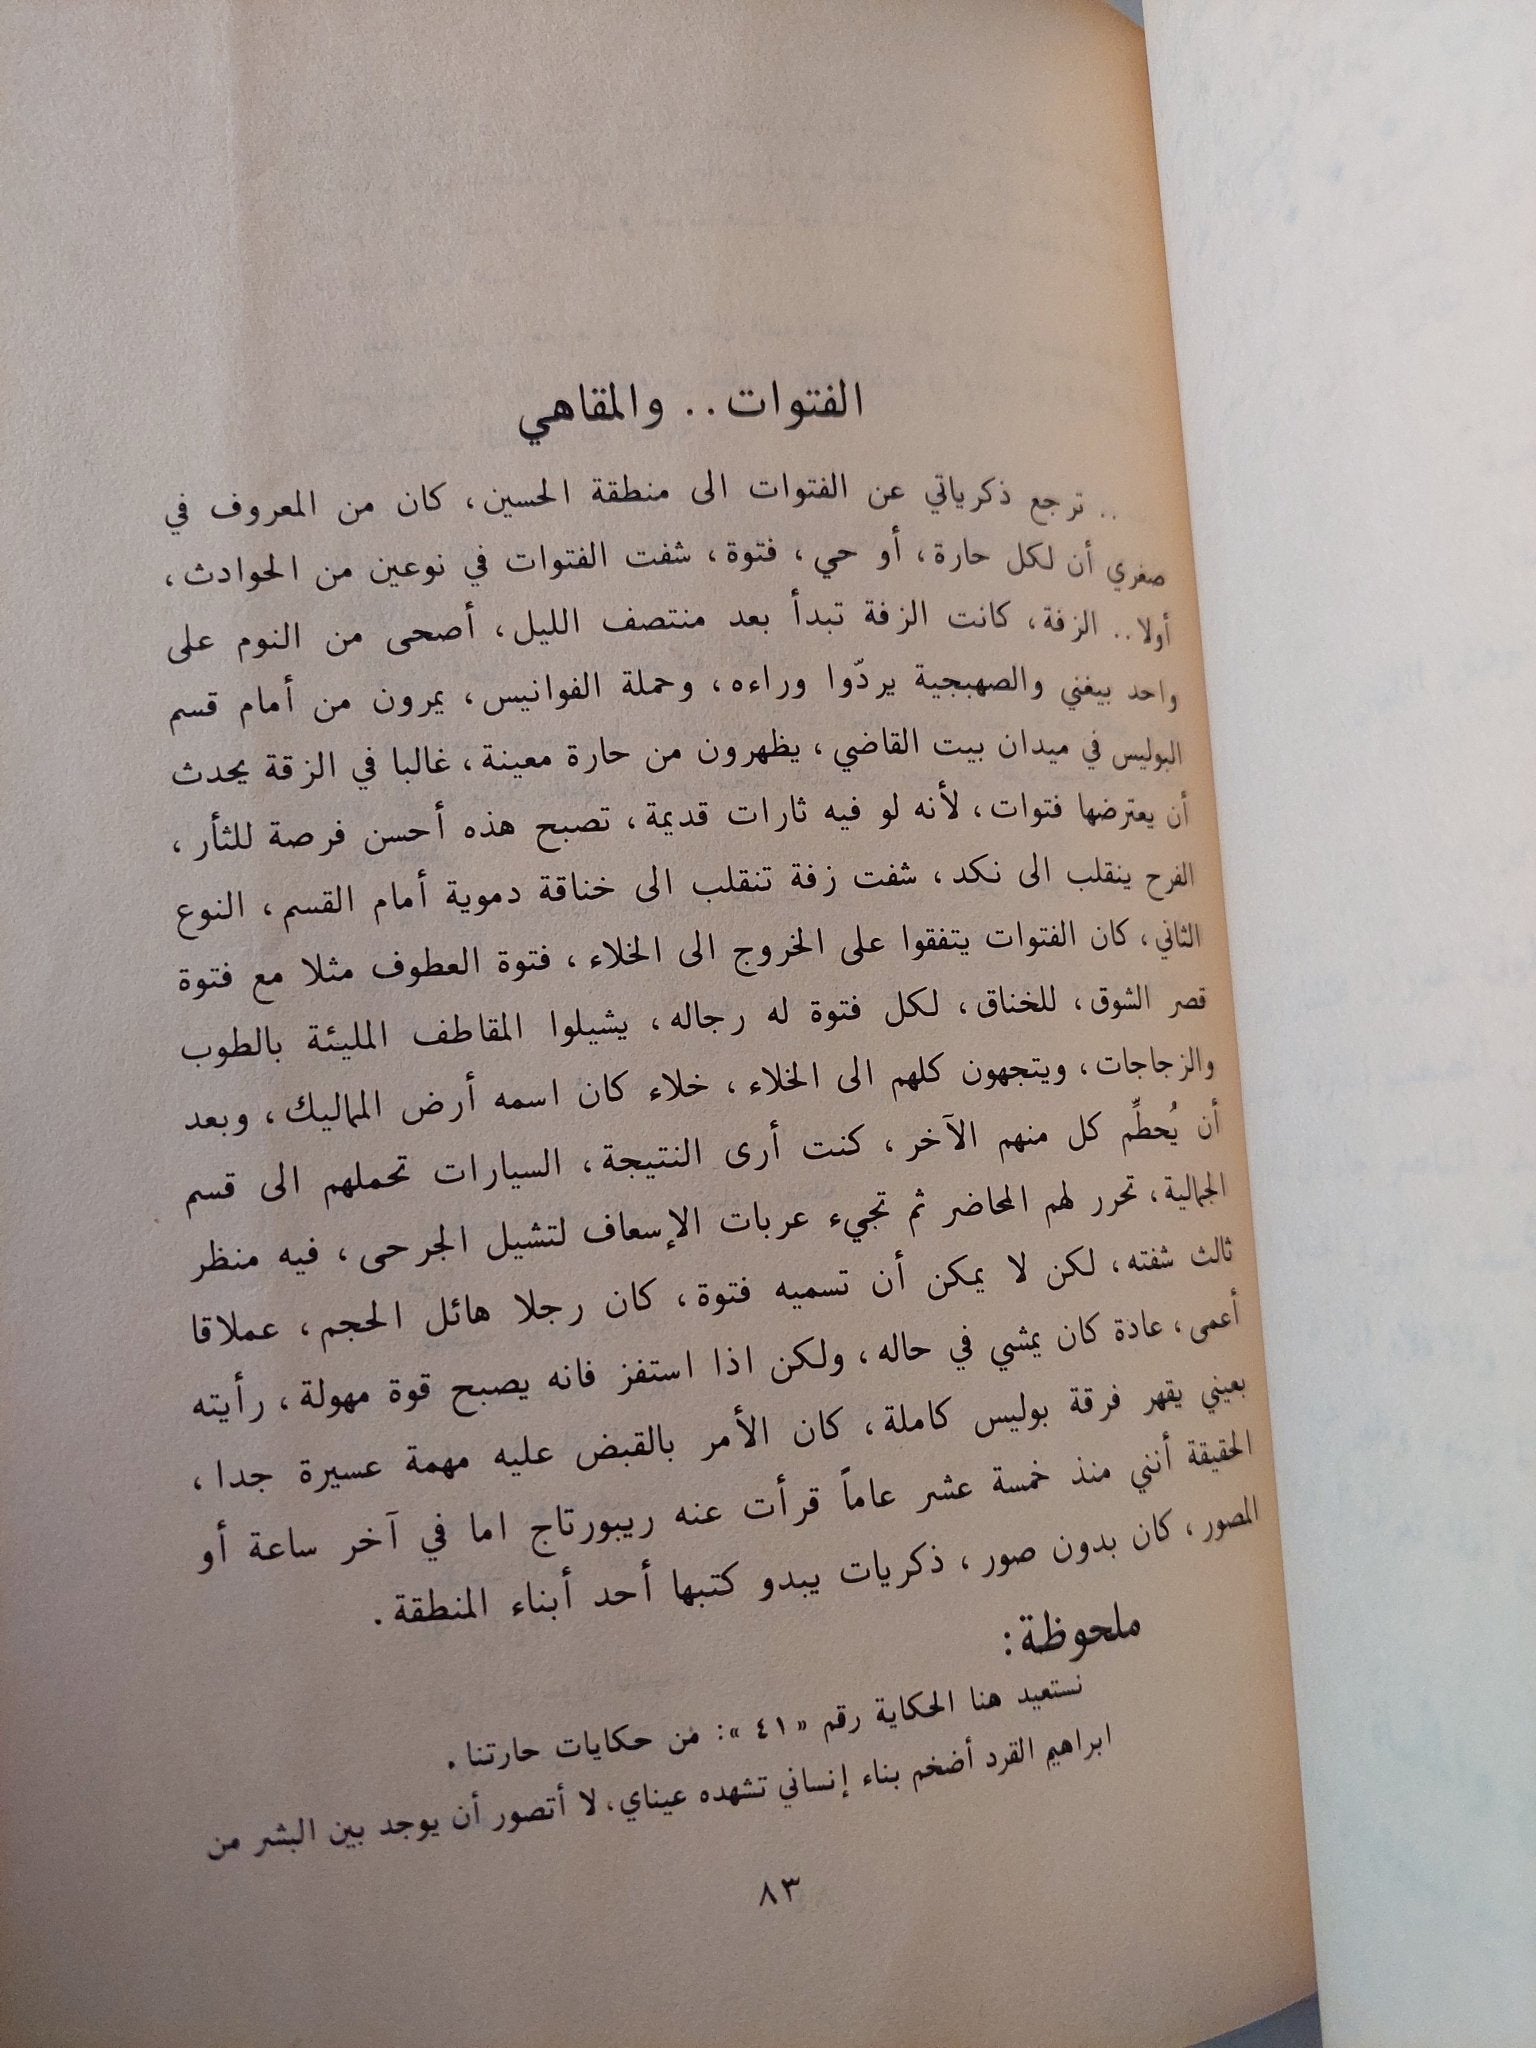 الفتوات.. والمقاهي
.. ترجع ذكرياتي عن الفتوات الى منطقة الحسين، كان من المعروف في
صغري أن لكل حارة، أو حي، فتوة، شفت الفتوات في نوعين من الحوادث،
أولا.. الزفة، كانت الزفة تبدأ بعد منتصف الليل، أصحى من النوم على
واحد بيغني والصهبجية يردّوا وراءه، وحملة الفوانيس، يمرون من أمام قسم
البوليس في ميدان بيت القاضي، يظهرون من حارة معينة، غالبا في الزقة يحدث
أن يعترضها فتوات، لأنه لو فيه ثارات قديمة، تصبح هذه أحسن فرصة للثأر،
الفرح ينقلب الى نكد، شفت زفة تنقلب الى خناقة دموية أمام القسم، النوع
الثاني، كان الفتوات يتفقوا على الخروج الى الخلاء، فتوة العطوف مثلا مع فتوة
قصر الشوق، للخناق، لكل فتوة له رجاله، يشيلوا المقاطف المليئة بالطوب
والزجاجات، ويتجهون كلهم الى الخلاء، خلاء كان اسمه أرض المماليك، وبعد
أن يُحطِّم كل منهم الآخر، كنت أرى النتيجة، السيارات تحملهم الى قسم
الجمالية، تحرر لهم المحاضر ثم تجيء عربات الإسعاف لتشيل الجرحى، فيه منظر
ثالث شفته، لكن لا يمكن أن تسميه فتوة، كان رجلا هائل الحجم، عملاقا
أعمى، عادة كان يمشي في حاله، ولكن اذا استفز فانه يصبح قوة مهولة، رأيته
بعيني يقهر فرقة بوليس كاملة، كان الأمر بالقبض عليه مهمة عسيرة جدا،
الحقيقة أنني منذ خمسة عشر عاماً قرأت عنه ريبورتاج اما في آخر ساعة أو
المصور، كان بدون صور، ذكريات يبدو كتبها أحد أبناء المنطقة.
ملحوظة:
نستعيد هنا الحكاية رقم «٤١»: من حكايات حارتنا.
ابراهيم القرد أضخم بناء إنساني تشهده عيناي، لا أتصور أن يوجد بين البشر من
٨٣